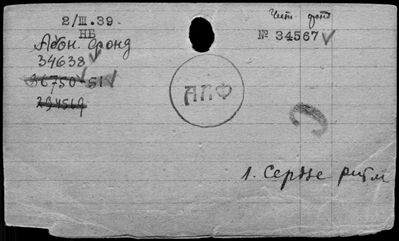 2/III.39.
НБ
Абон. фонд
34638
36750-51
294569
Чит. фонд
№ 34567
АПФ
1. Сердце ритм